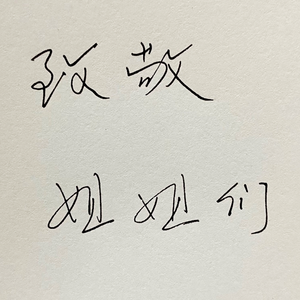 致敬
姐姐们